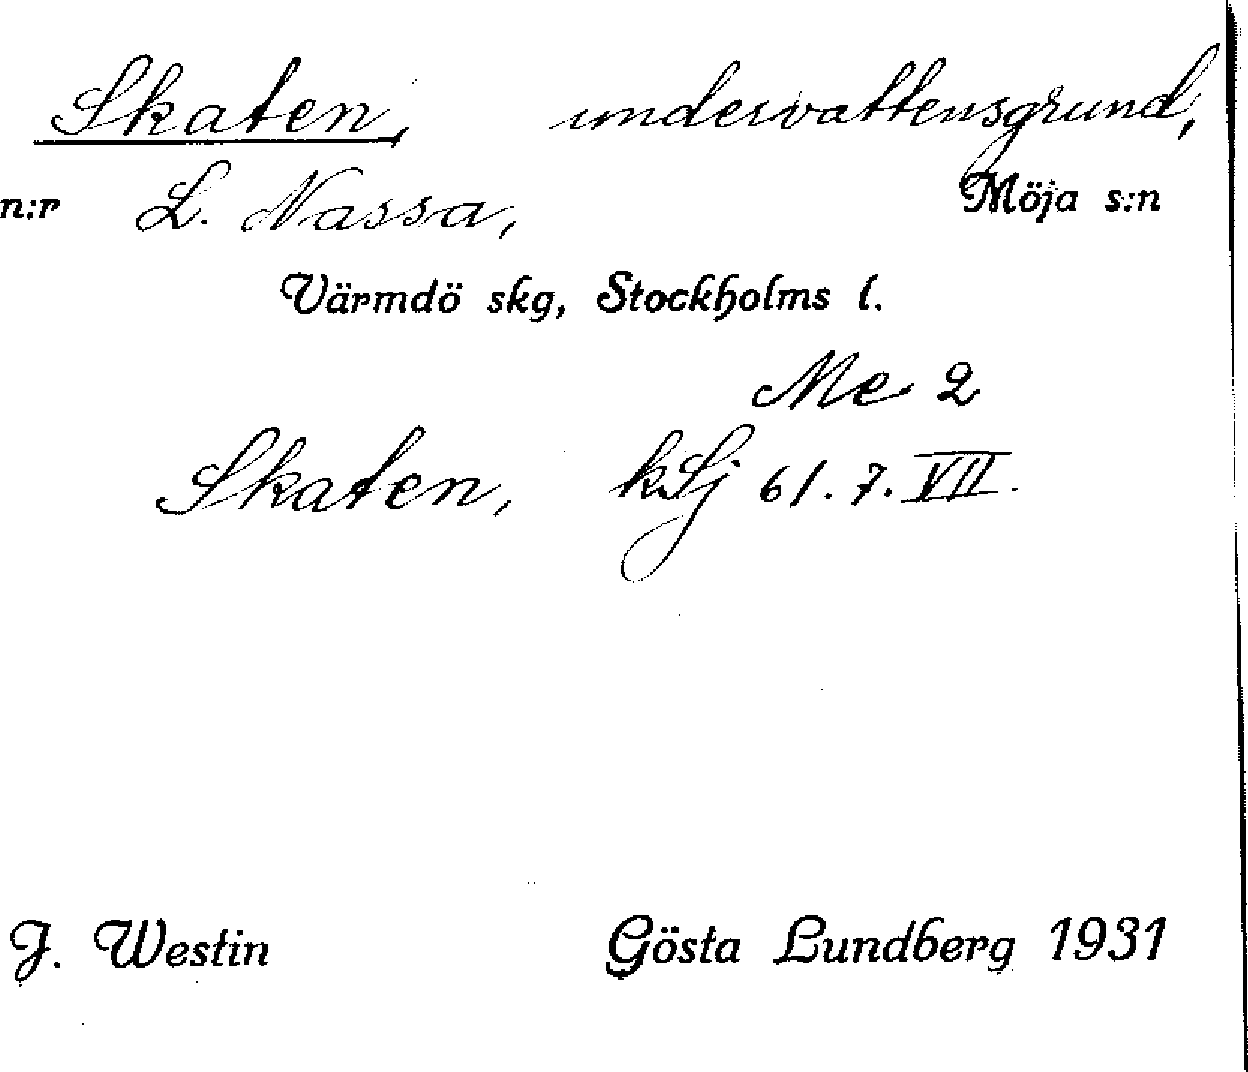 Skaten, undervattensgrund,
n:r L. Nassa, Möja s:n
Värmdö skg, Stockholms l.
Me 2
Skaten, kSj 61. 7. VII.
J. Westin Gösta Lundberg 1931